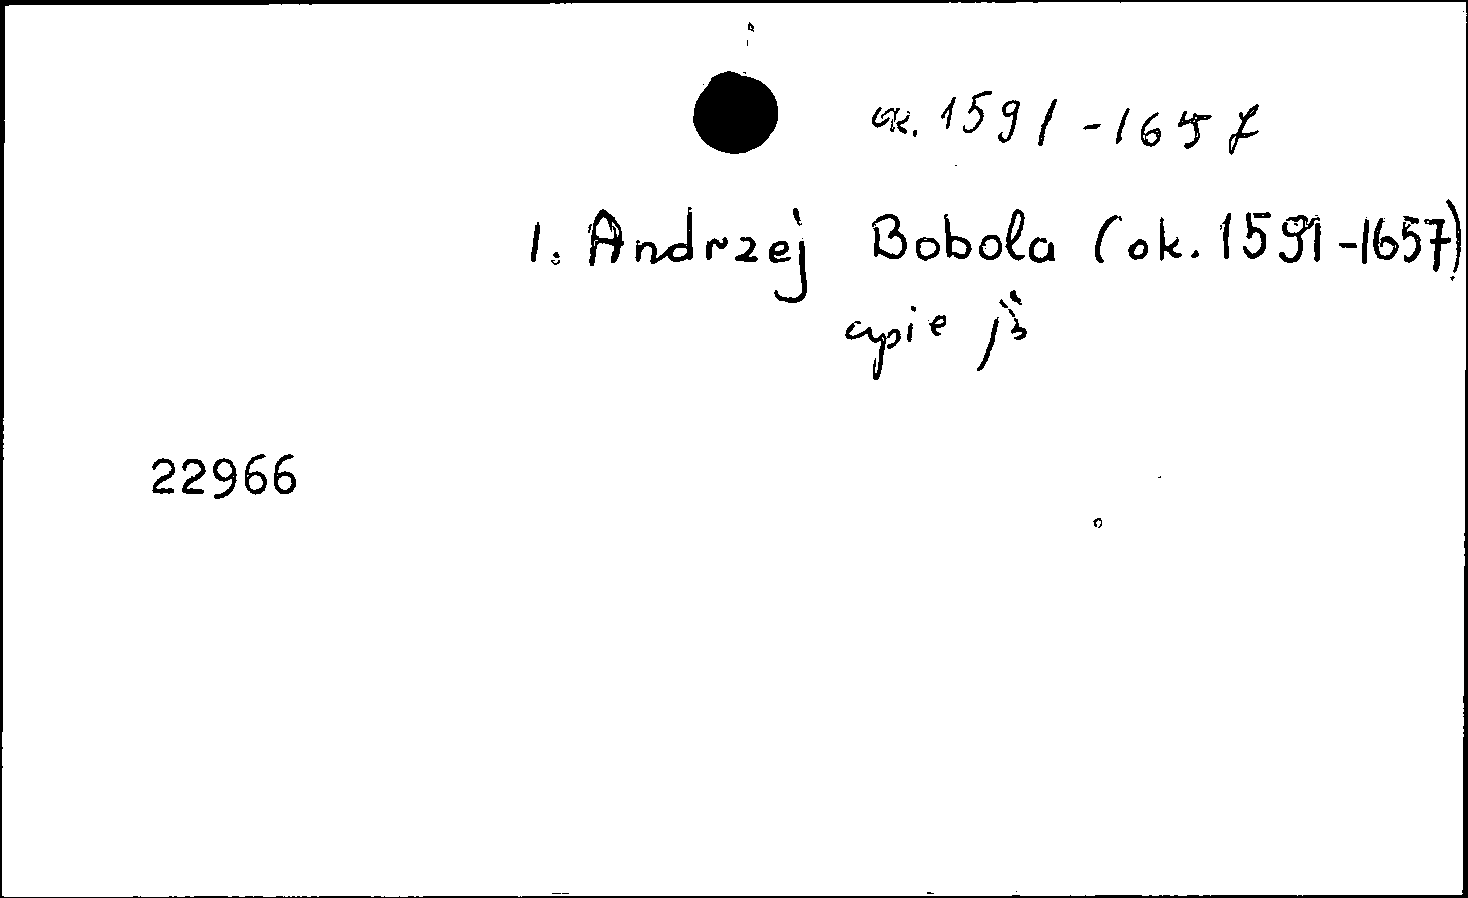 ok. 1591-1657
1. Andrzej Bobola (ok. 1591-1657)
apie jį
22966